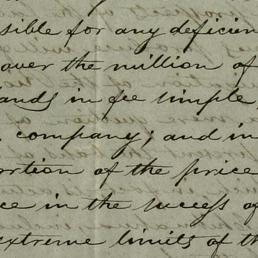 sible for any deficien
over the million of
lands in fee simple,
company; and in
ortion of the price
ce in the success of
extreme limits of th